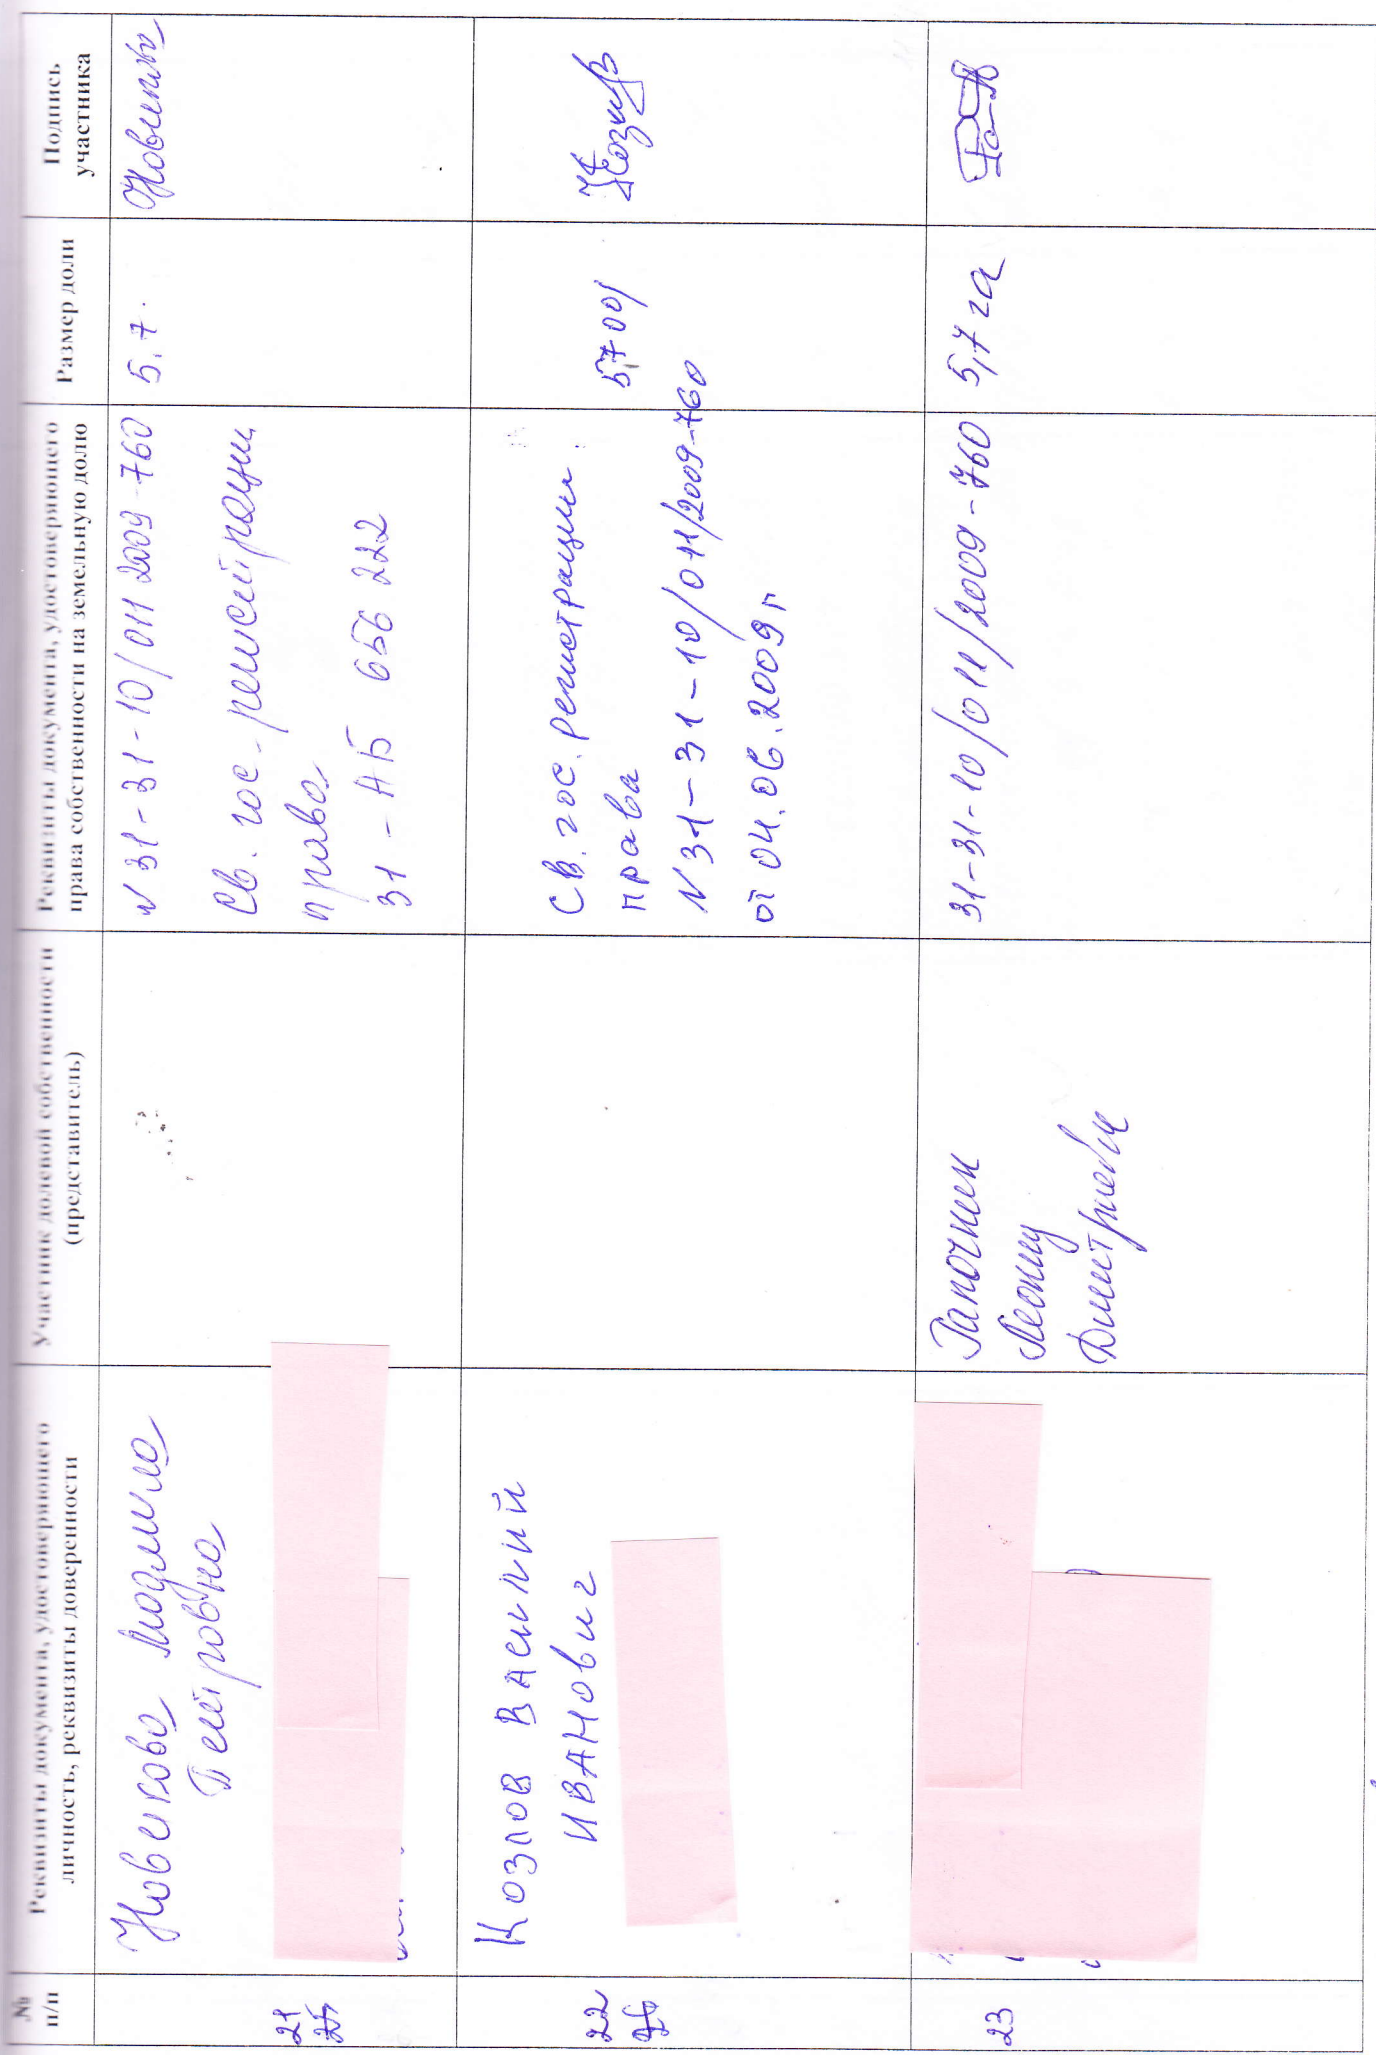 № п/п
Реквизиты документа, удостоверяющего личность, реквизиты доверенности
Участник долевой собственности (представитель)
Реквизиты документа, удостоверяющего права собственности на земельную долю
Размер доли
Подпись участника
21
25
Новикова Людмила
Петровна
N 31-31-10/011 2009-760
Св. гос. регистрации
права
31-АБ 656 222
5,7.
22
26
Козлов Василий
Иванович
Св. гос. регистрации
права
N 31-31-10/011/2009-760
от 04.06.2009 г
5,700/
23
Гапочкин
Леонид
31-31-10/011/2009-760
5,7 га